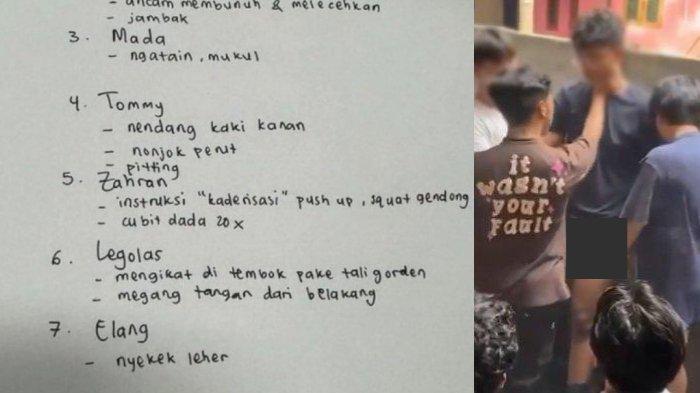 - ancam membunuh & melecehkan
- jambak
3. Mada
- ngatain, mukul
4. Tommy
- nendang kaki kanan
- nonjok perut
- pitting
5. Zahran
- instruksi "kaderisasi" push up, squat gendong
- cubit dada 20x
6. Legolas
- mengikat di tembok pake tali gorden
- megang tangan dari belakang
7. Elang
- nyekek leher
it
wasn't
your
Fault